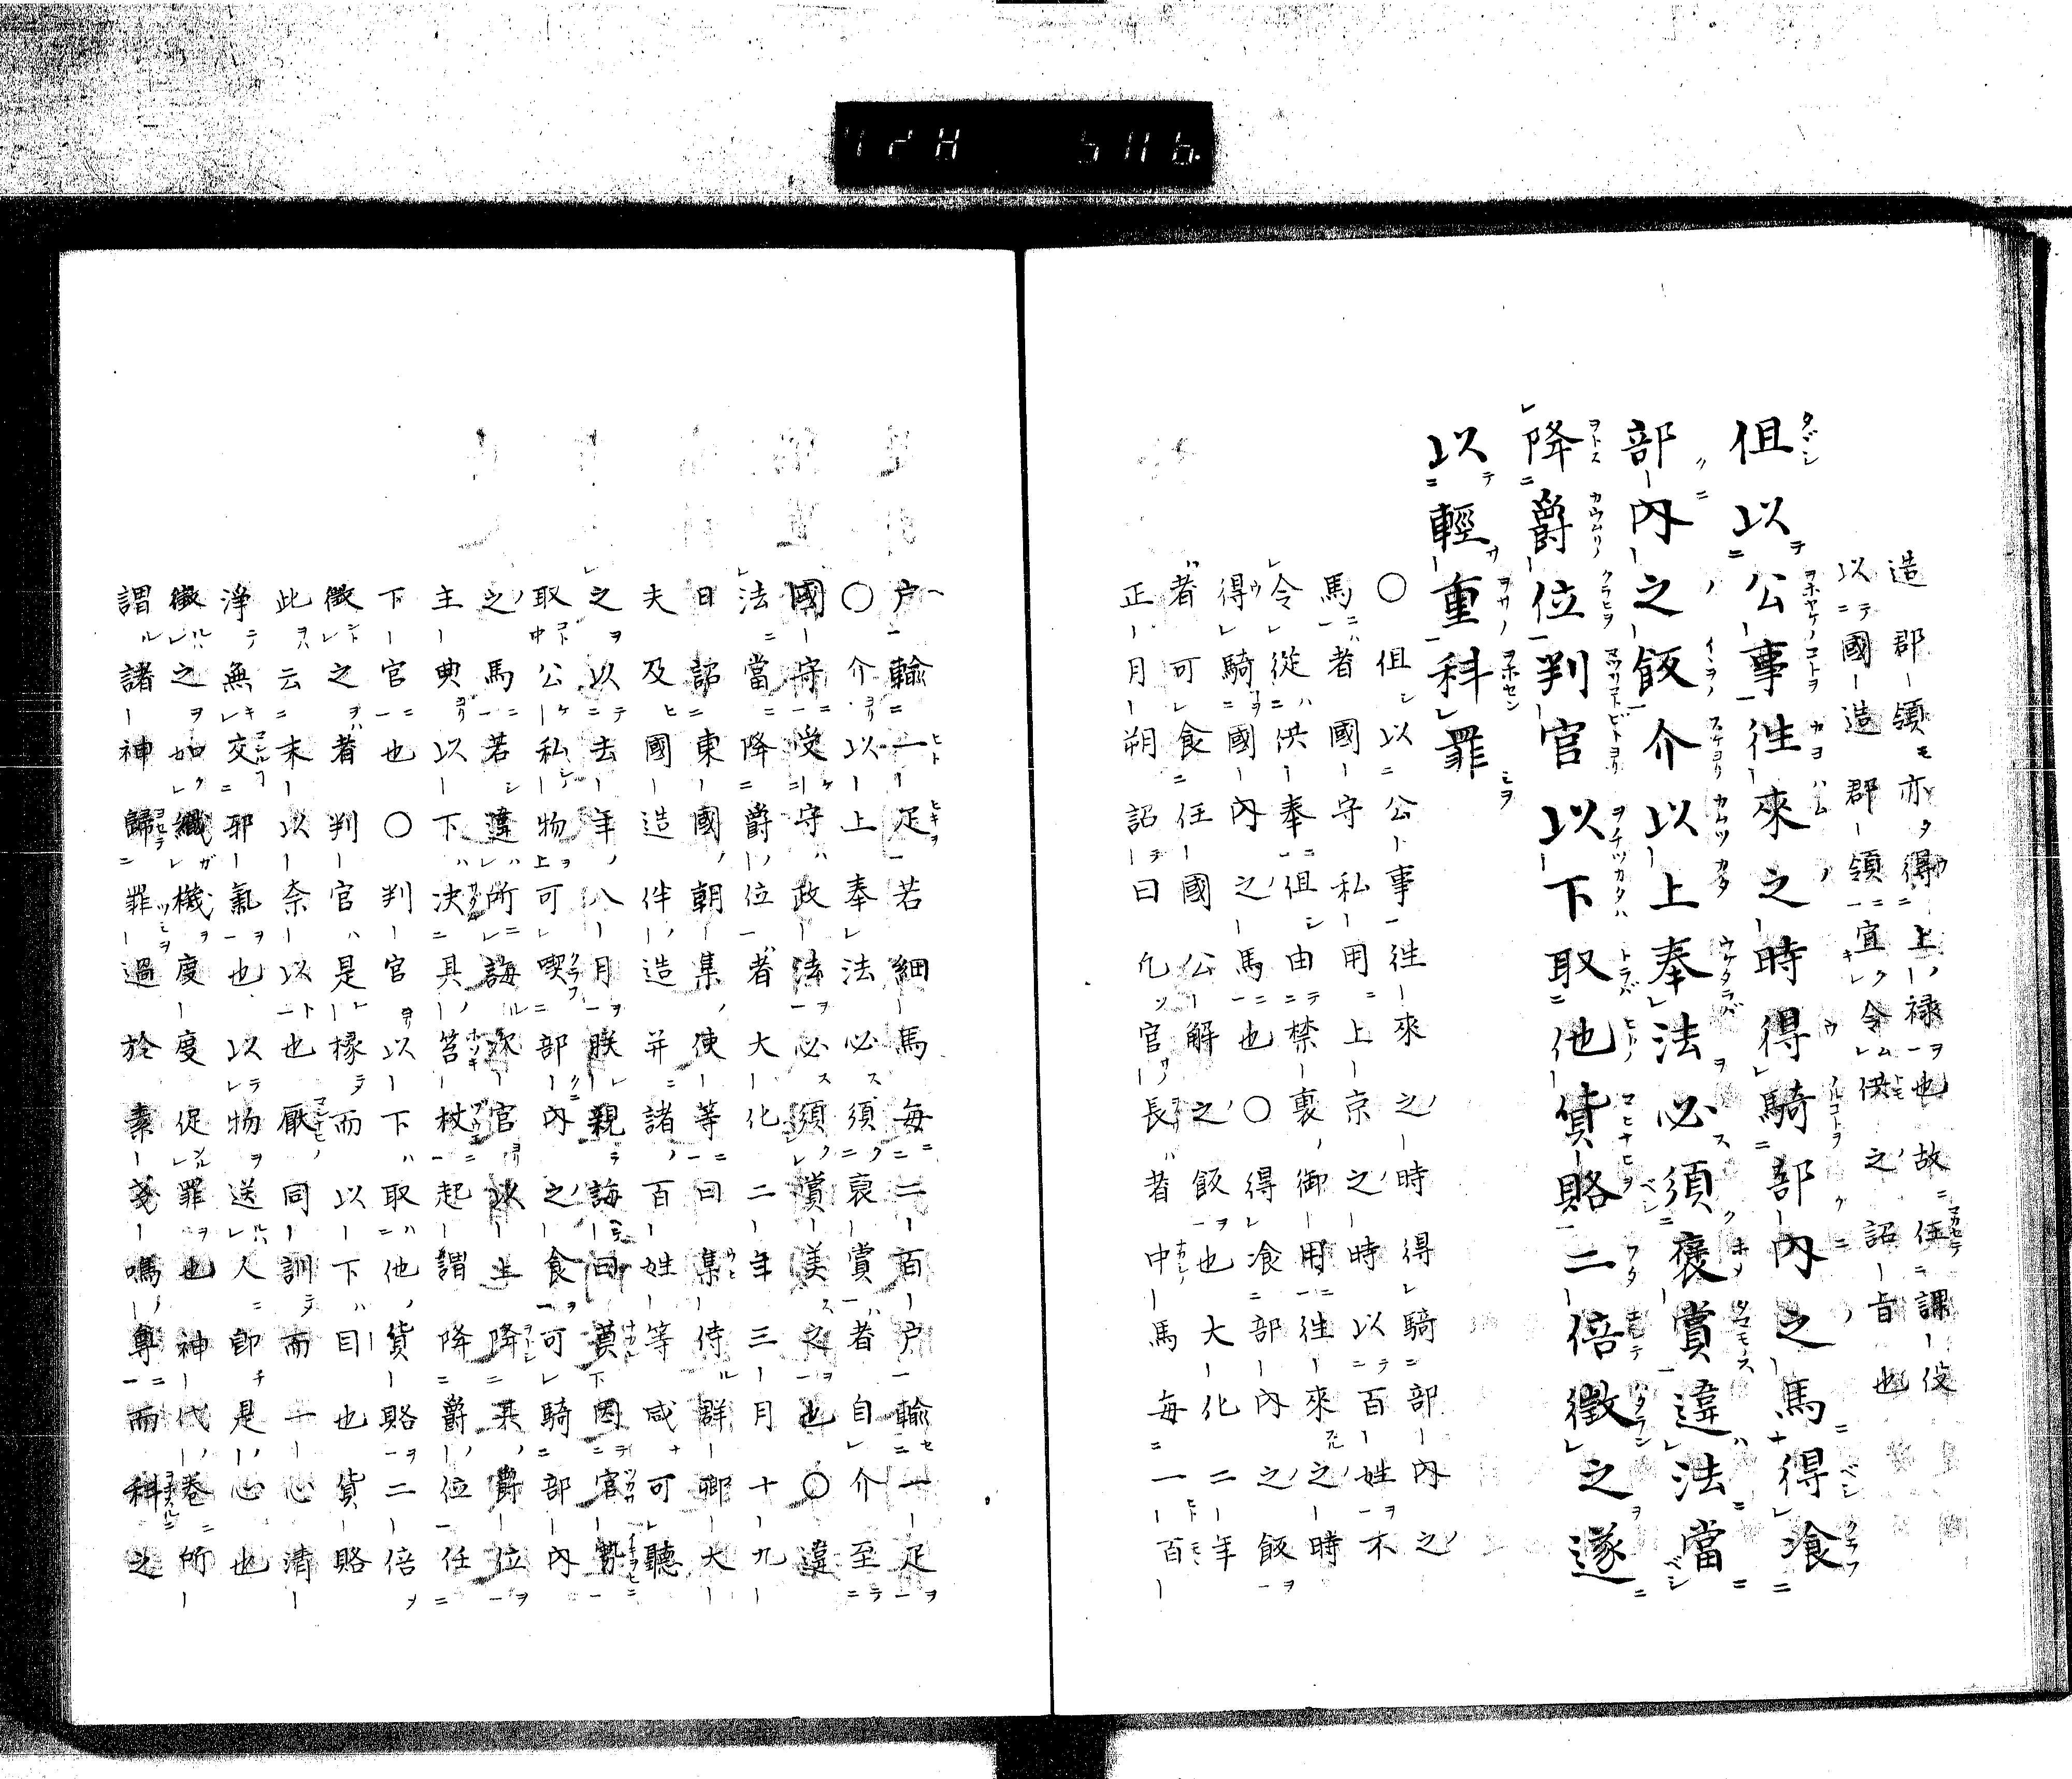 造郡領亦得上禄也故任課役
以國造郡領宜令供之詔旨也
但以公事徃來之時得騎部內之馬得飡
部內之飯介以上奉法必須褒賞違法當
降爵位判官以下取他貨賂二倍徵之遂
以輕重科罪
○但以公事徃來之時得騎部內之
馬者國守私用上京之時以百姓不
令從供奉但由禁裏御用徃來之時
得騎國內之馬也○得飡部內之飯
者可食任國公解之飯也大化二年
正月朔詔曰凢官長者中馬每一百
戶輸一疋若細馬每二百戶輸一疋
○介以上奉法必須裒賞者自介至
國守受守政法必須賞美之也○違
法當降爵位者大化二年三月十九
日詔東國朝集使等曰集侍群卿大
夫及國造伴造并諸百姓等咸可聽
之以去年八月朕親誨曰莫因官勢
取公私物可喫部內之食可騎部內
之馬若違所誨次官以上降其爵位
主典以下决其笞杖謂降爵位任
下官也○判官以下取他貨賂二倍
徵之者判官是椽而以下目也貨賂
此云末以奈以也厭同訓而一心清
淨無交邪氣也以物送人卽是心也
徵之如織機度度促罪也神代卷所
謂諸神歸罪過於素戔嗚尊而科之